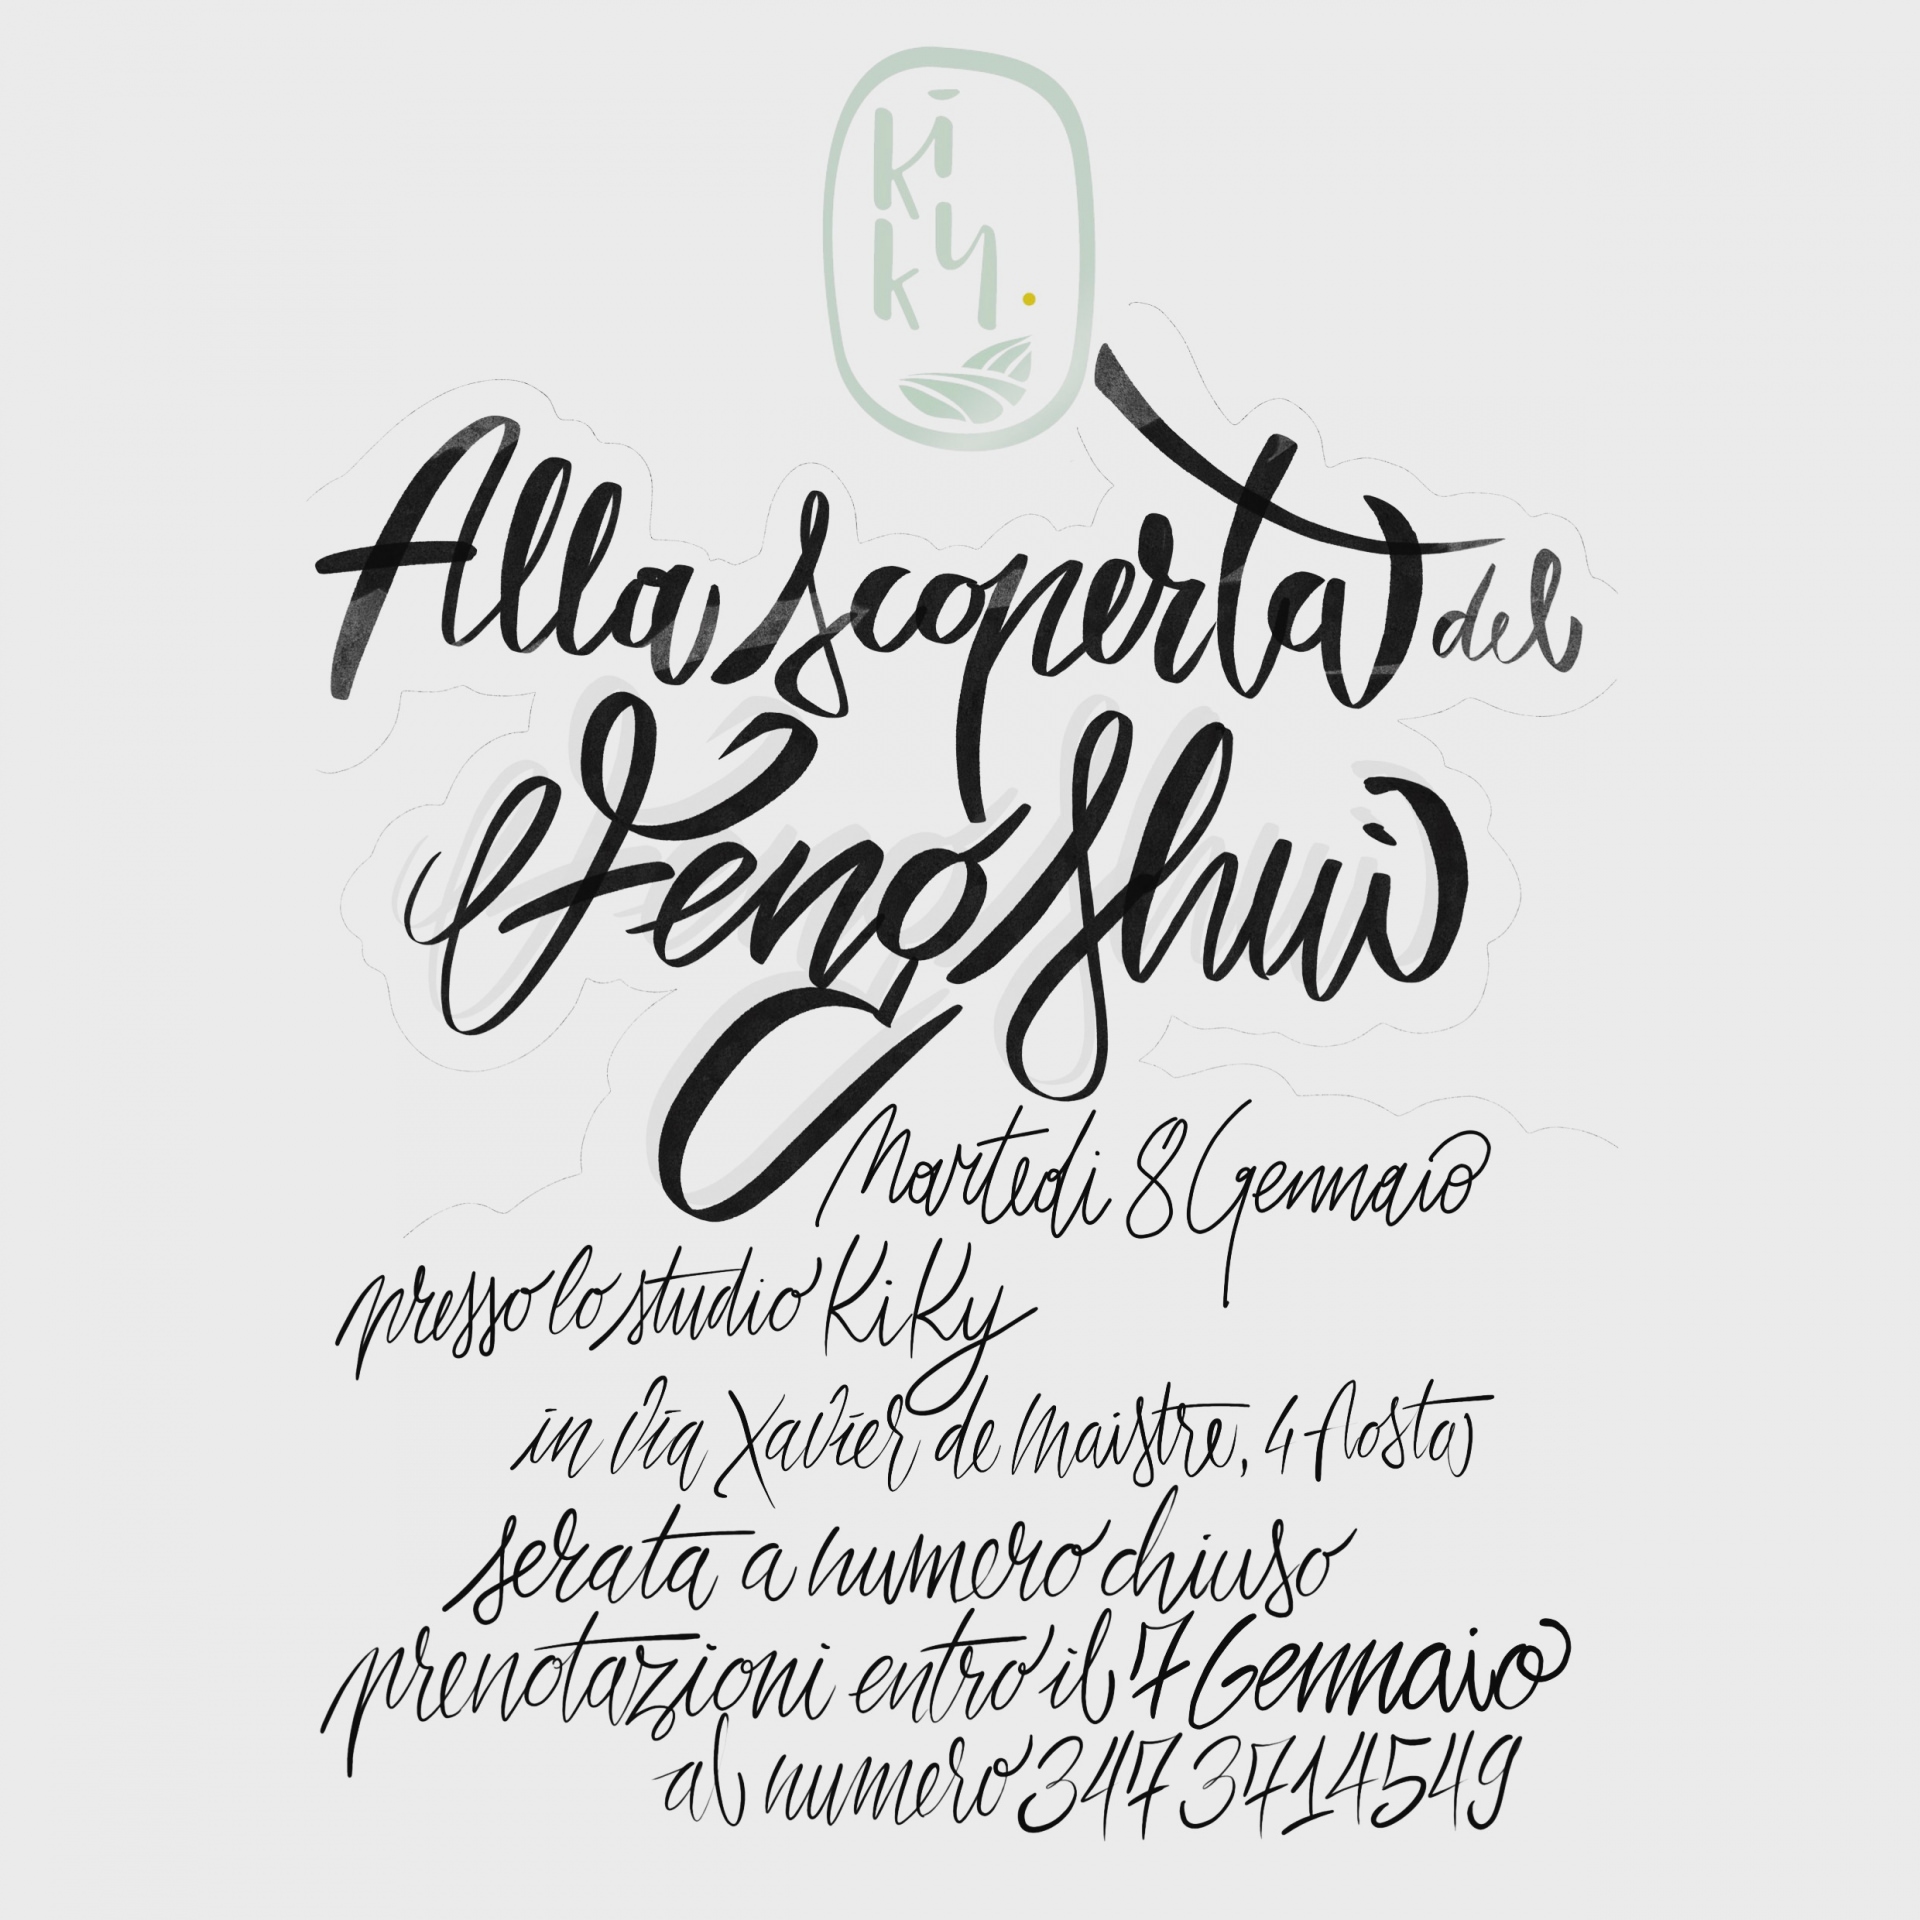 Ki
Ky.
Alla scoperta del
Feng Shui
Martedi 8 Gennaio
presso lo studio Kiky
in Via Xavier de Maistre, 4 Aosta
serata a numero chiuso
prenotazioni entro il 7 Gennaio
al numero 347 3714549